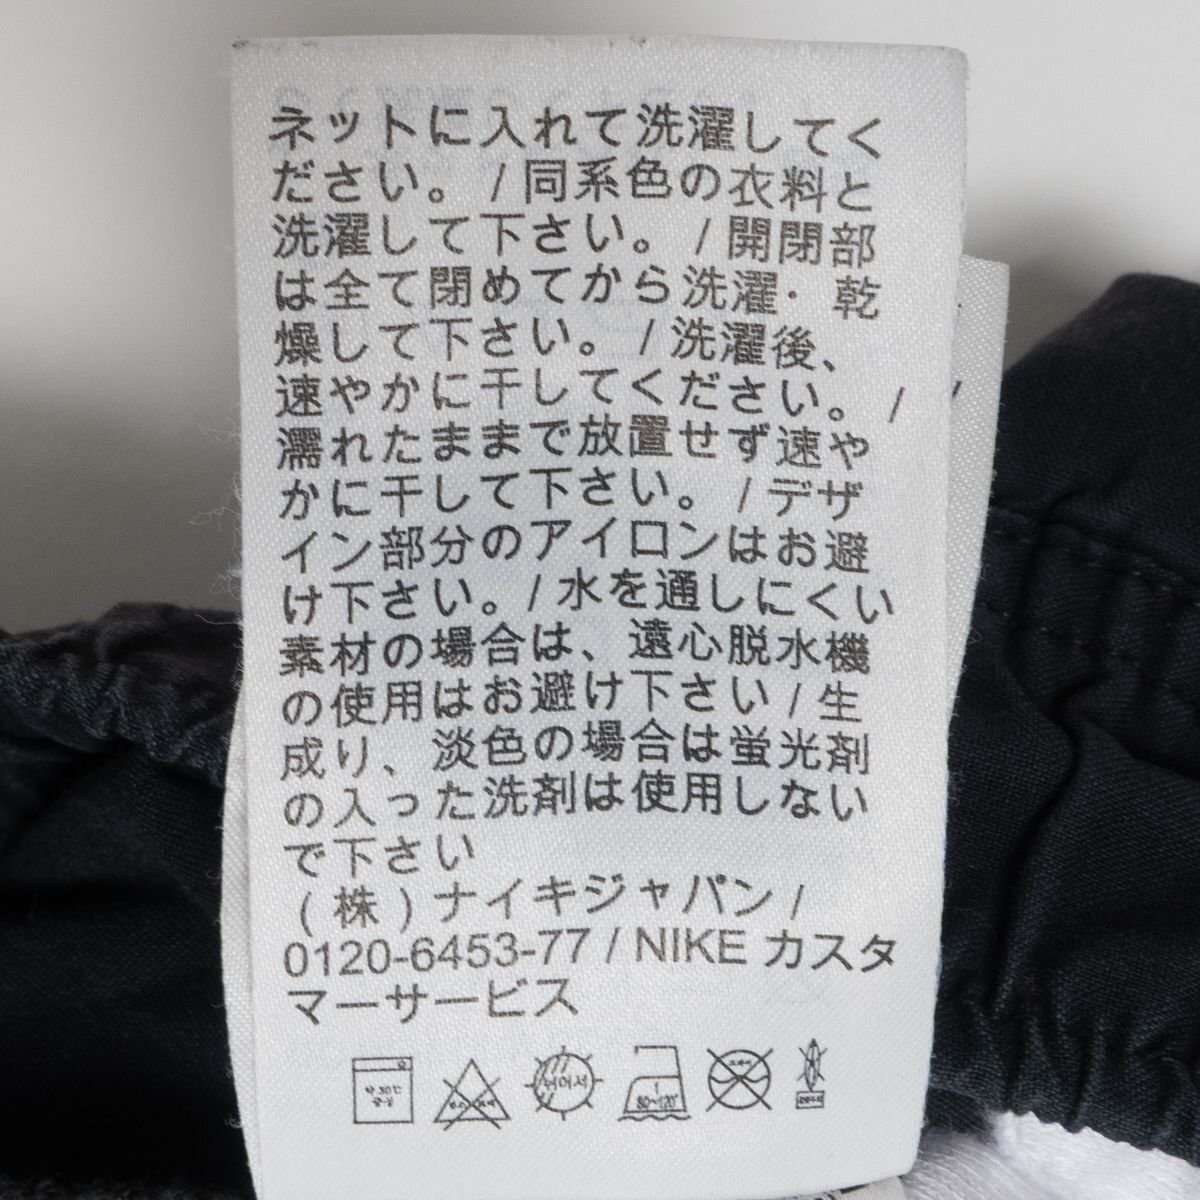 ネットに入れて洗濯してく
ださい。 / 同系色の衣料と
洗濯して下さい。 / 開閉部
は全て閉めてから洗濯・乾
燥して下さい。 / 洗濯後、
速やかに干してください。 /
濡れたままで放置せず速や
かに干して下さい。 / デザ
イン部分のアイロンはお避
け下さい。 / 水を通しにくい
素材の場合は、遠心脱水機
の使用はお避け下さい / 生
成り、淡色の場合は蛍光剤
の入った洗剤は使用しない
で下さい
(株) ナイキジャパン /
0120-6453-77 / NIKE カスタ
マーサービス
약 30℃
중성
뉘어서
1
80~120℃